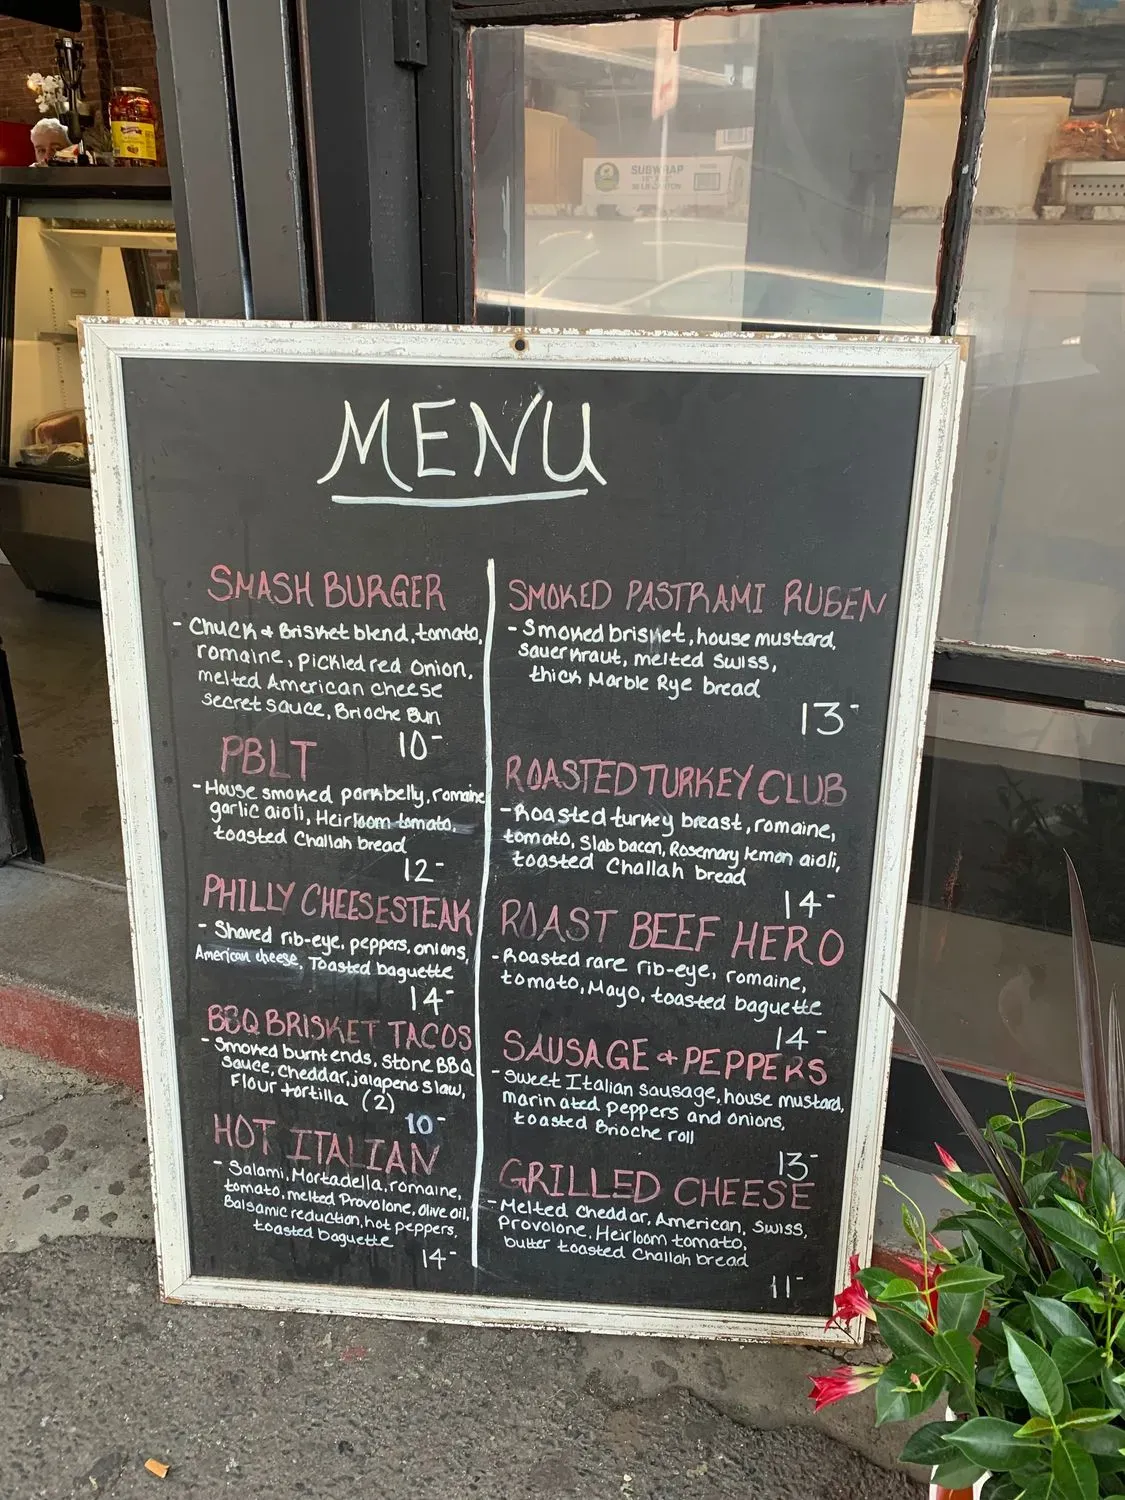 SUBWRAP
MENU
SMASH BURGER
- Chuck & Brisket blend, tomato,
romaine, pickled red onion,
melted American cheese
secret sauce, Brioche Bun
10-
PBLT
- House smoked porkbelly, romaine
garlic aioli, Heirloom tomato,
toasted Challah bread
12-
PHILLY CHEESESTEAK
- Shaved rib-eye, peppers, onions,
American cheese, Toasted baguette
14-
BBQ BRISKET TACOS
- Smoked burnt ends, Stone BBQ
Sauce, cheddar, jalapeno slaw,
Flour tortilla (2)
10-
HOT ITALIAN
- Salami, Mortadella, romaine,
tomato, melted Provolone, Olive oil,
Balsamic reduction, hot peppers,
toasted baguette
14-
SMOKED PASTRAMI RUBEN
- Smoked brisket, house mustard,
sauerkraut, melted Swiss,
thick Marble Rye bread
13-
ROASTED TURKEY CLUB
- Roasted turkey breast, romaine,
tomato, Slab bacon, Rosemary lemon aioli,
toasted Challah bread
14-
ROAST BEEF HERO
- Roasted rare rib-eye, romaine,
tomato, Mayo, toasted baguette
14-
SAUSAGE & PEPPERS
- Sweet Italian sausage, house mustard,
marinated peppers and onions,
toasted Brioche roll
13-
GRILLED CHEESE
- Melted Cheddar, American, Swiss,
Provolone, Heirloom tomato,
butter toasted Challah bread
11-